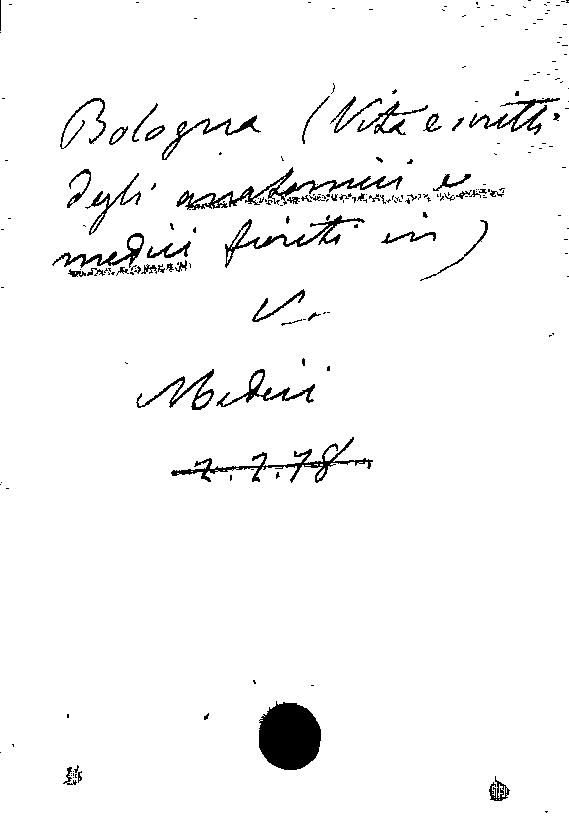 Bologna (Vita e scritti
degli anatomici e
medici fioriti in)
V.
Medici
7.7.78